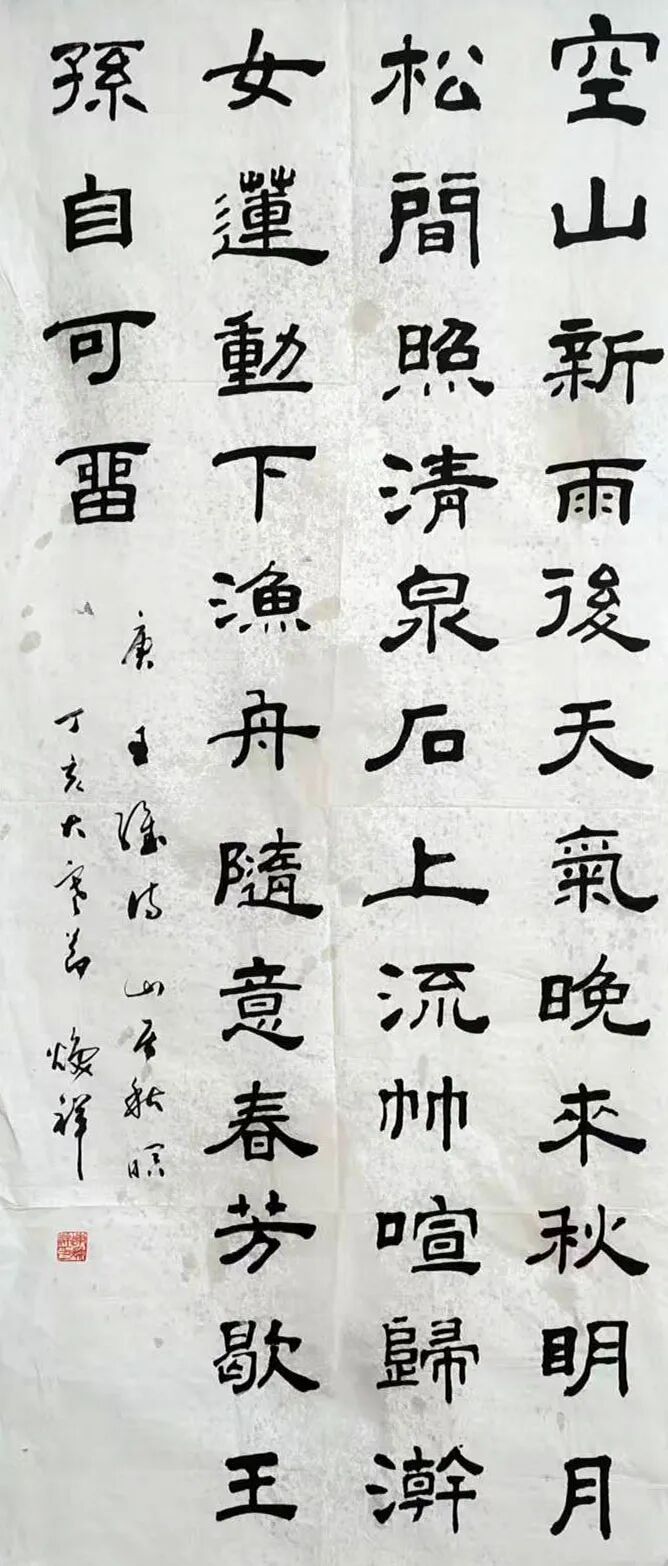 空山新雨後天氣晚來秋明月
松間照清泉石上流竹喧歸澣
女蓮動下漁舟隨意春芳歇王
孫自可畱
唐王維詩山居秋暝
丁亥大寒節 煥祥